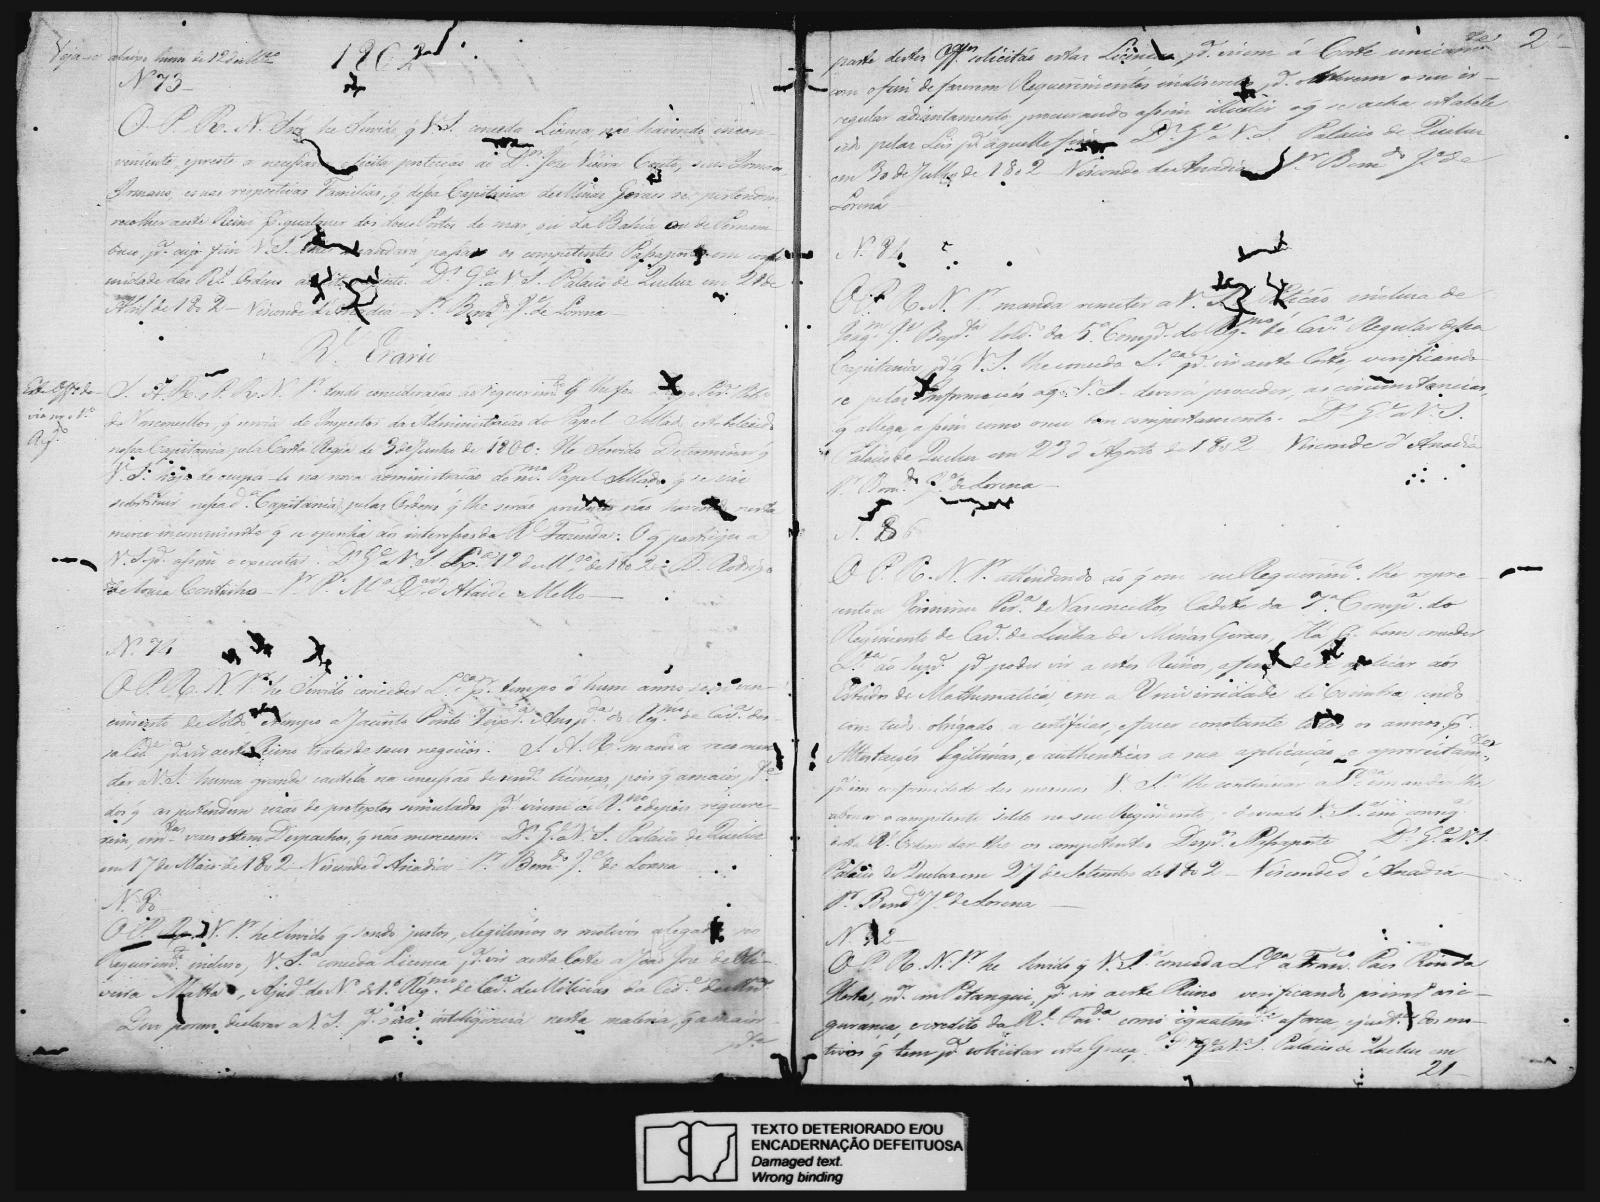 Veja-se abaixo huma de 12 de Mço
1802
N. 73
O P. R. N. Snr. he Servido q V. S. conceda Licença, não havendo incon-
veniente, e preste a necessaria protecção ao Dr. Joze Vieira Couto, seus
Irmaos, e suas respectivas Familias, q dessa Capitania de Minas Geraes se pertendem
recolher a este Reino p. qualquer dos dous Portos de mar, ou da Bahia ou de Pernam
buco, pa. cujo fim V. S. mandará passar os competentes Passaportes em confor
midade das Rs. Ordens Ds. Ge. a V. S. Palacio de Queluz em 21 de
Abril de 1802 - Visconde d'Anadia - Sr. Bernardo Je. de Lorena
Rl. Erario
Este Offo. de
via ir no Lo.
S. A. R. o P. R. N. Sr. tendo consideração ao requerimto. q lhe fez
de Vasconcellos, q servia de Inspector da Administração do Papel Sellado estabelecido
nessa Capitania pela Carta Regia de 3 de Junho de 1800: He Servido Determinar q
V. Sa. haja de occupa-lo na nova administração do mmo. Papel Sellado, q se vai
substituir nessa da. Capitania, pelas Ordens q lhe serão não havendo nesta
merce inconveniente q se oponha aos interesses da Rl. Fazenda: O q participo a
V. S. pa. assim o executar. Ds. Ge. a V. S. 12 de Mço. de 1802. D. Rodrigo
de Souza Coutinho - Sr. Po. Ma. Xer. d'Ataide e Mello
N. 74
O P. R. N. Sr. he Servido conceder Lça. pr. tempo d'hum anno sem ven-
cimento de Soldo e tempo a Jacinto Pinto Teixra. Anspda. do Regmto. de Cava. des-
sa Cide. pa. vir a este Reino tratar de seus negocios. S. A. R. manda recomen-
dar a V. S. huma grande cautela na concessão de semes. licenças, pois q a maior pte.
dos q as pertendem uzão de pretextos simulados pa. virem á Corte e depois requere-
rem, e mtas. vezes obtem Despachos, q não merecem. Ds. Ge. a V. S. Palacio de Queluz
em 17 de Maio de 1802 - Visconde d'Anadia - Sr. Berndo. Je. de Lorena
N. 80
O P. R. N. Sr. he Servido q sendo justos, e legitimos os motivos alegados no
Requerimto. incluso, V. Sa. conceda Licença pa. vir a esta Corte a João Joze de Oli-
veira Matta, Ajude. do No. do 1o. Regmto. de Cava. de Milicias da Cide. de Marna.
Devo porem declarar a V. S. pa. sua intelligencia nesta materia, q a maior
pte.
2
parte destes Offes. solicitão estas Licenças pa. virem á Corte unicamte.
com o fim de fazerem Requerimentos indiscretos pa. obterem o seu ir-
regular adiantamento, procurando assim illudir o q se acha estabele
cido pelas Leis pa. aquelle fim. Ds. Ge. a V. S. Palacio de Queluz
em 30 de Julho de 1802 Visconde de Anadia Sr. Berndo. Je. de
Lorena
N. 84
O P. R. N. Sr. manda remeter a V. S. a Petição inclusa de
Joaqm. Je. Bapta. Solo. da 5a. Compa. do Regmto. de Cava. Regular dessa
Capitania pa. q V. S. lhe conceda Lça. pa. vir a esta Corte, verificando-
se pelas Informaçoẽs a q V. S. deverá proceder, as circumstancias
q allega assim como o seu bom comportamento. Ds. Ge. a V. S.
Palacio de Queluz em 23 d'Agosto de 1802 Visconde d'Anadia
Sr. Berndo. Je. de Lorena
N. 86
O P. R. N. Sr. attendendo ao q em seu Requerimto. lhe repre-
sentou Firmino Pera. de Vasconcellos, Cadete da 7a. Compa. do
Regimento de Cava. de Linha de Minas Geraes, Ha p. bem conceder
Lça. ao Supe. pa. poder vir a estes Reinos, a fim de se aplicar aos
Estudos de Mathematica, em a Universidade de Coimbra sendo
com tudo obrigado a certificar, e fazer constante todos os annos p.
Attestaçoẽs legitimas, e authenticas a sua aplicação, e aproveitamto.
pa. em conformidade das mesmas V. Sa. lhe continuar a Lça. e mandar-lhe
abonar o competente soldo no seu Regimento, devendo V. Sa. em conseqa.
desta Rl. Ordem dar-lhe os competentes Despos. e Passaporte Ds. Ge. a V. S.
Palacio de Queluz em 27 de Setembro de 1802 - Visconde d'Anadia
Sr. Berndo. Je. de Lorena
N. 92
O P. R. N. Sr. he Servido q V. Sa. conceda Lça. a Franco. Paes
Horta, mor. em Pitangui, pa. vir a este Reino verificando primo. a se-
gurança, e credito da Rl. Fazda. como igualmte. a força, e justa. dos mo-
tivos q tem pa. solicitar esta Graça. Ds. Ge. a V. S. Palacio de Queluz em
21
TEXTO DETERIORADO E/OU
ENCADERNAÇÃO DEFEITUOSA
Damaged text.
Wrong binding